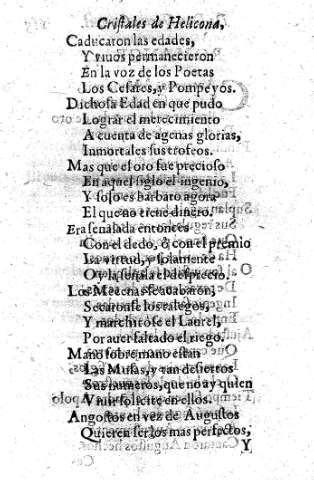 Cristales de Helicona,
Caducaron las edades,
Y viuos permanecieron
En la voz de los Poetas
Los Cesares, y Pompeyos.
Dichosa Edad en que pudo
Lograr el merecimiento
A cuenta de agenas glorias,
Inmortales sus trofeos.
Mas que el oro fue precioso
En aquel siglo el ingenio,
Y solo es barbaro agora
El que no tiene dinero.
Era señalada entonces
Con el dedo, ò con el premio
La virtud, y solamente
Oy la señala el desprecio.
Los Mecenas se acabaron,
Secaronse los talegos,
Y marchitòse el Laurel,
Por auer faltado el riego.
Mano sobre mano estàn
Las Musas, y tan desiertos
Sus numeros, que no ay quien
Viuir solicite en ellos.
Angostos en vez de Augustos
Quieren ser los mas perfectos,
Y